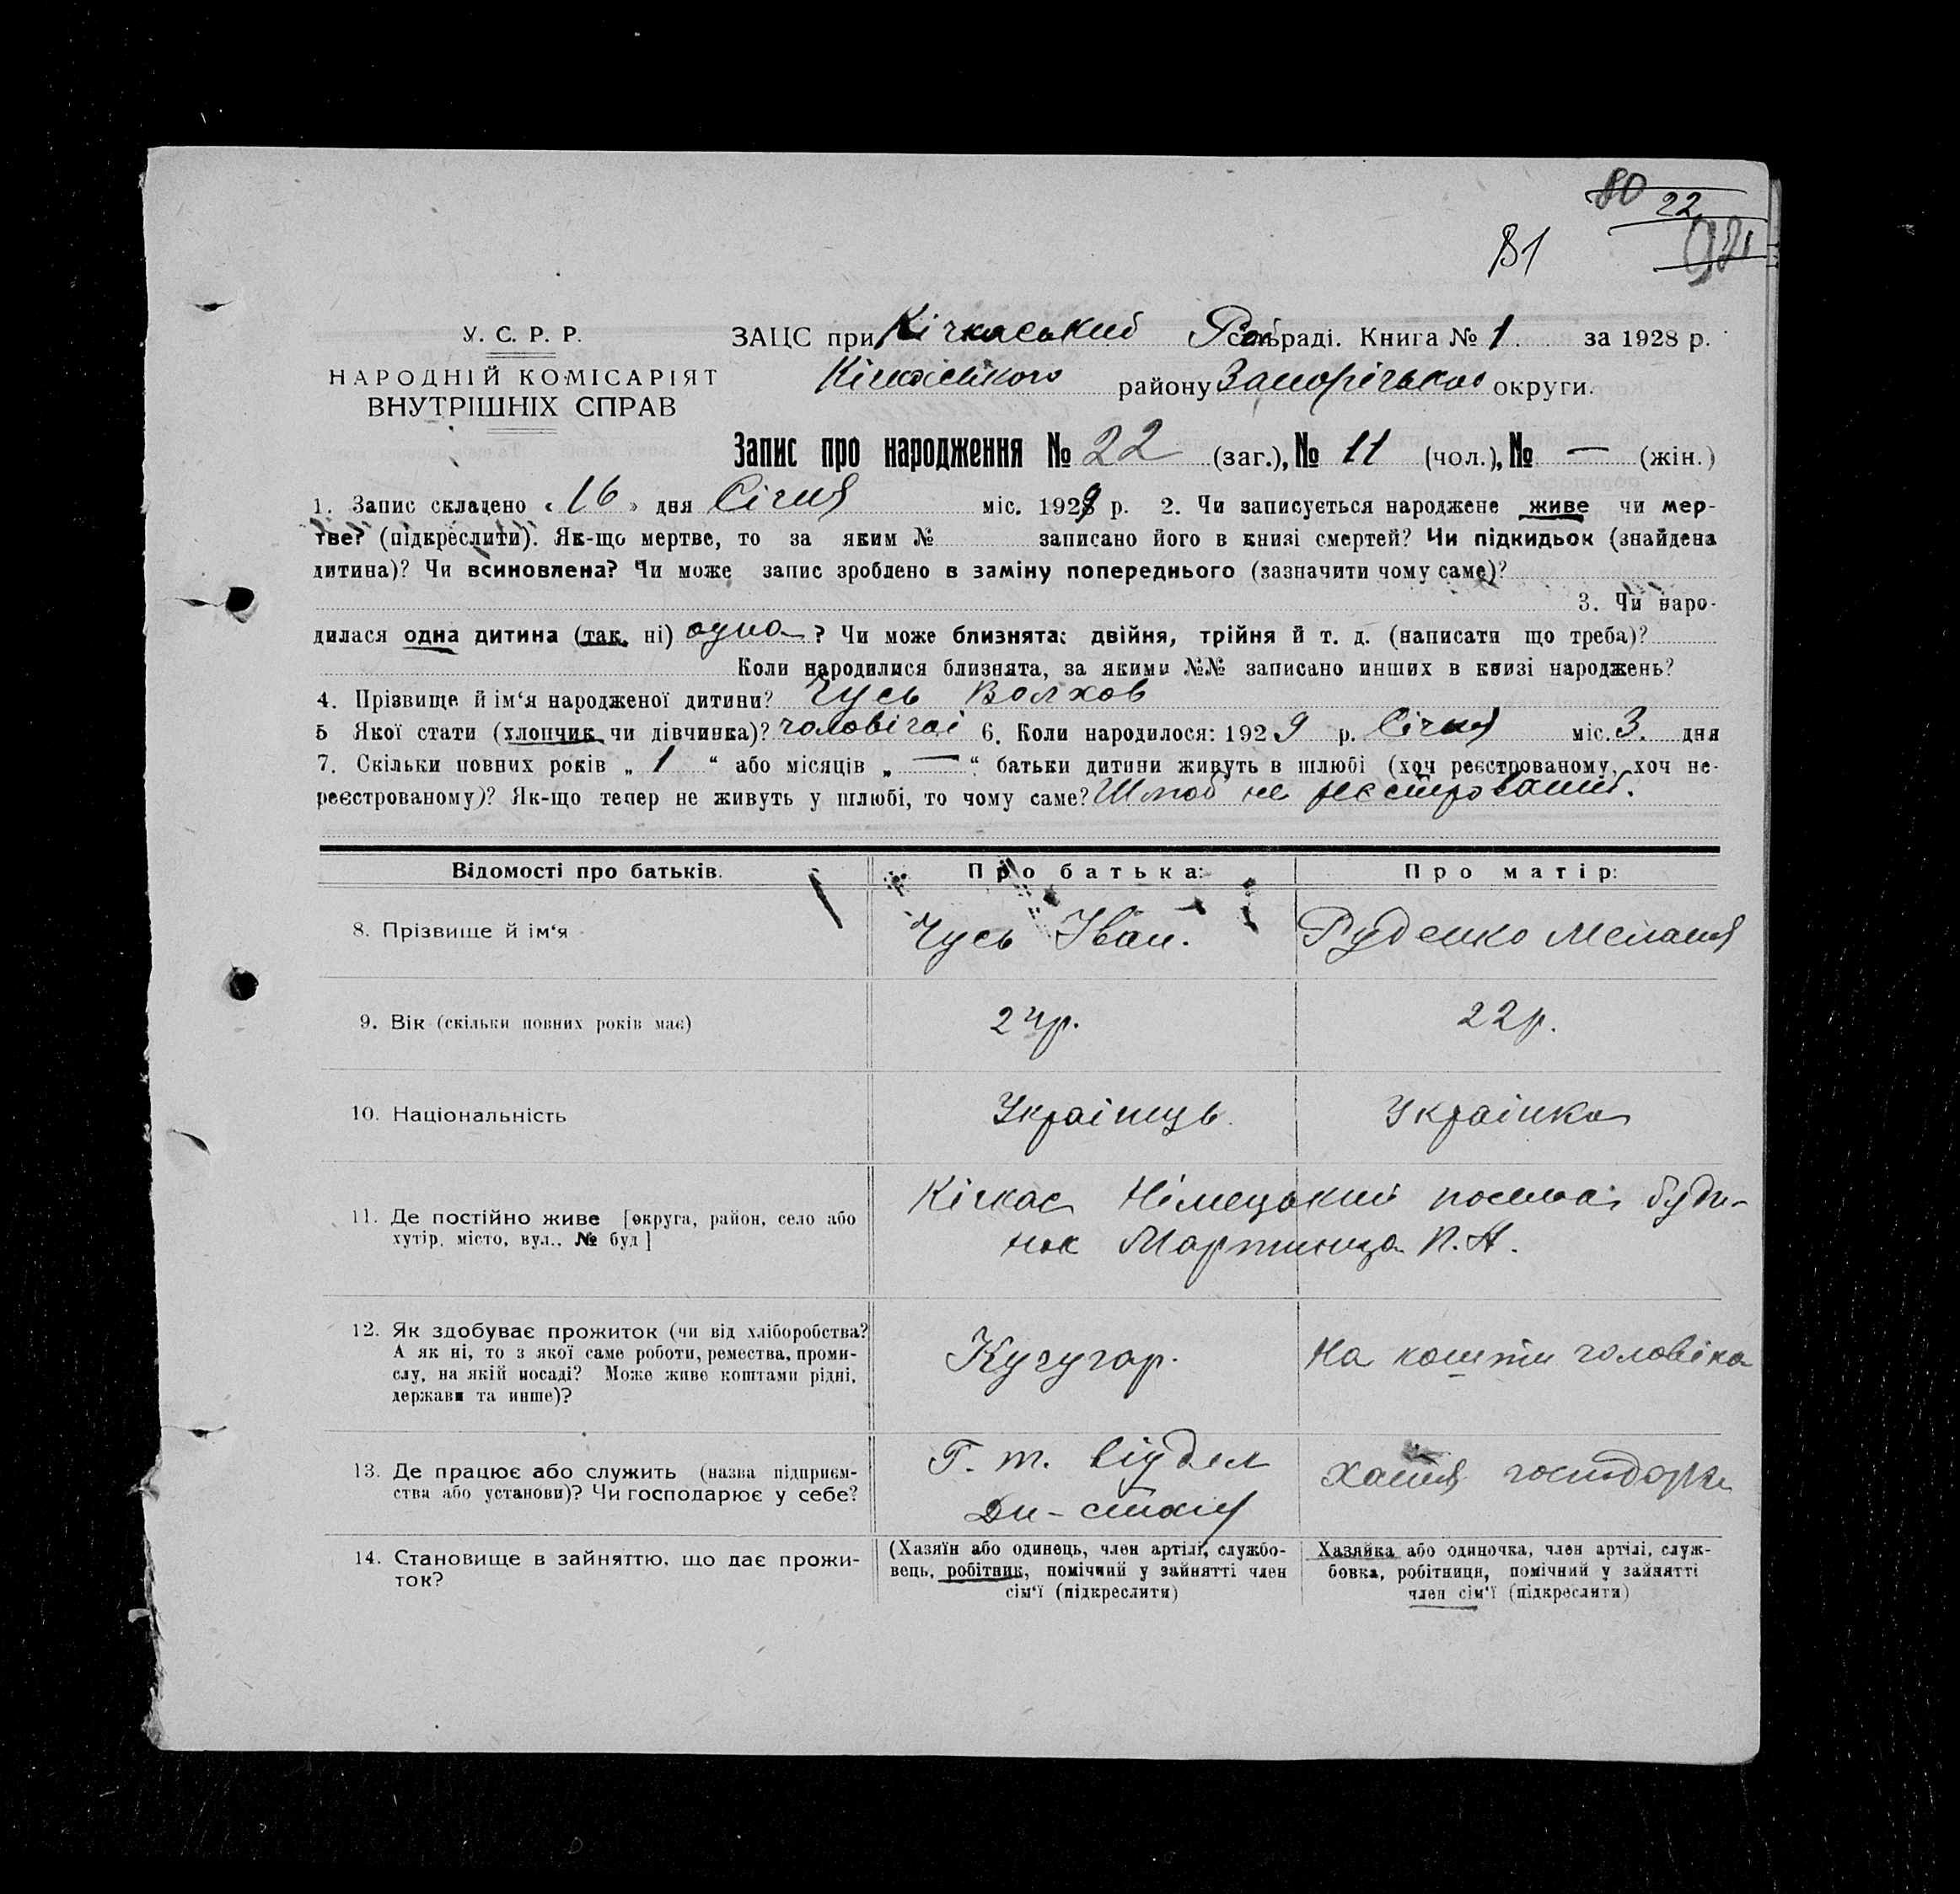 80
22
81
У. С. Р. Р.
НАРОДНІЙ КОМІСАРІЯТ
ВНУТРІШНІХ СПРАВ
ЗАЦС при Кічкаський Рай сільраді. Книга № 1 за 1928 р.
Кічкаського району Запорізької округи.
Запис про народження № 22 (заг.), № 11 (чол.), № — (жін.)
1. Запис складено « 16 » дня Січня міс. 1929 р. 2. Чи записується народжене живе чи мер-
тве? (підкреслити). Як-що мертве, то за яким № записано його в книзі смертей? Чи підкидьок (знайдена
дитина)? Чи всиновлена? Чи може запис зроблено в заміну попереднього (зазначити чому саме)?
3. Чи наро-
дилася одна дитина (так, ні) одна ? Чи може близнята: двійня, трійня й т. д. (написати що треба)?
Коли народилися близнята, за якими №№ записано инших в книзі народжень?
4. Прізвище й ім‘я народженої дитини? Чусь Волхов
5 Якої стати (хлопчик чи дівчинка)? чоловічої 6. Коли народилося: 1929 р. Січня міс. 3. дня
7. Скільки повних років „ 1 “ або місяців „ — “ батьки дитини живуть в шлюбі (хоч реєстрованому, хоч не-
реєстрованому)? Як-що тепер не живуть у шлюбі, то чому саме? Шлюб не реєстрований.
Відомості про батьків. Про батька: Про матір:
8. Прізвище й ім‘я Чусь Іван. Руденко Меланія
9. Вік (скільки повних років має) 24р. 22р.
10. Національність Українець Українка
11. Де постійно живе [округа, район, село або Кічкас Німецький посьолок буди-
хутір, місто, вул., № буд] нок Мартинца П. А.
12. Як здобуває прожиток (чи від хліборобства?
А як ні, то з якої саме роботи, ремества, проми- Кучугар. На кошти чоловіка
слу, на якій посаді? Може живе коштами рідні,
держави та инше)?
13. Де працює або служить (назва підприєм- Г. т. відділ хатня господарка
ства або установи)? Чи господарює у себе?
14. Становище в зайняттю, що дає прожи-
ток?
(Хазяїн або одинець, член артілі, службо- Хазяйка або одиночка, член артілі, служ-
вець, робітник, помічний у зайнятті член бовка, робітниця, помічний у зайнятті
сім‘ї (підкреслити) член сім‘ї (підкреслити)